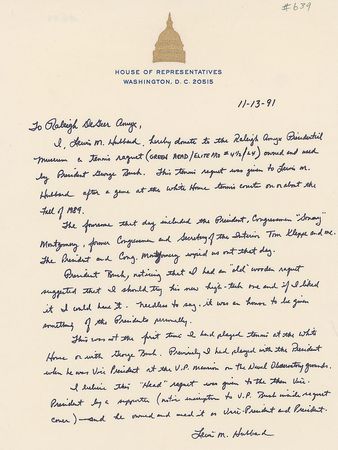 #639
HOUSE OF REPRESENTATIVES
WASHINGTON, D. C. 20515
11-13-91
To Raleigh DeGeer Amyx,
I, Lewis M. Hubbard, hereby donate to the Raleigh Amyx Presidential
Museum a tennis raquet (GREEN HEAD/ELITE PRO # 4⅝/L4) owned and used
by President George Bush. This tennis raquet was given to Lewis M.
Hubbard after a game at the white House tennis courts on or about the
Fall of 1989.
The foursome that day included the President, Congressman "Sonny"
Montgomery, former Congressman and Secretary of the Interior Tom Kleppe and me.
The President and Cong. Montgomery wiped us out that day.
President Bush, noticing that I had an "old" wooden raquet
suggested that I should try his new high-tech one and if I liked
it I could have it. Needless to say, it was an honor to be given
something of the Presidents personally.
This was the first time I had played tennis at the White
House or with George Bush. Previously I had played with the President
when he was Vice President at the V.P. mansion on the Naval Observatory grounds.
I believe this "Head" raquet was given to the then Vice
President by a supporter (notice inscription to V.P. Bush inside raquet
cover) - and he owned and used it as Vice-President and President.
Lewis M. Hubbard